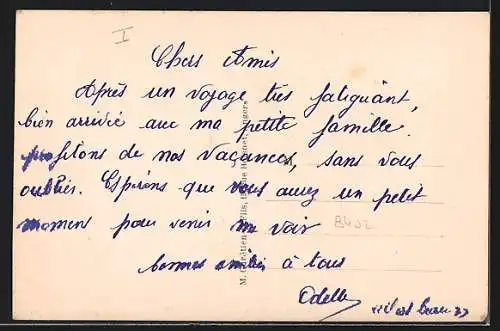 I
Chers Amis
Après un voyage très fatiguant,
bien arrivée avec ma petite famille.
profitons de nos vacances, sans vous
oublier. Espérons que vous aurez un petit
moment pour venir me voir
8432
bonnes amitiés à tous
Odette